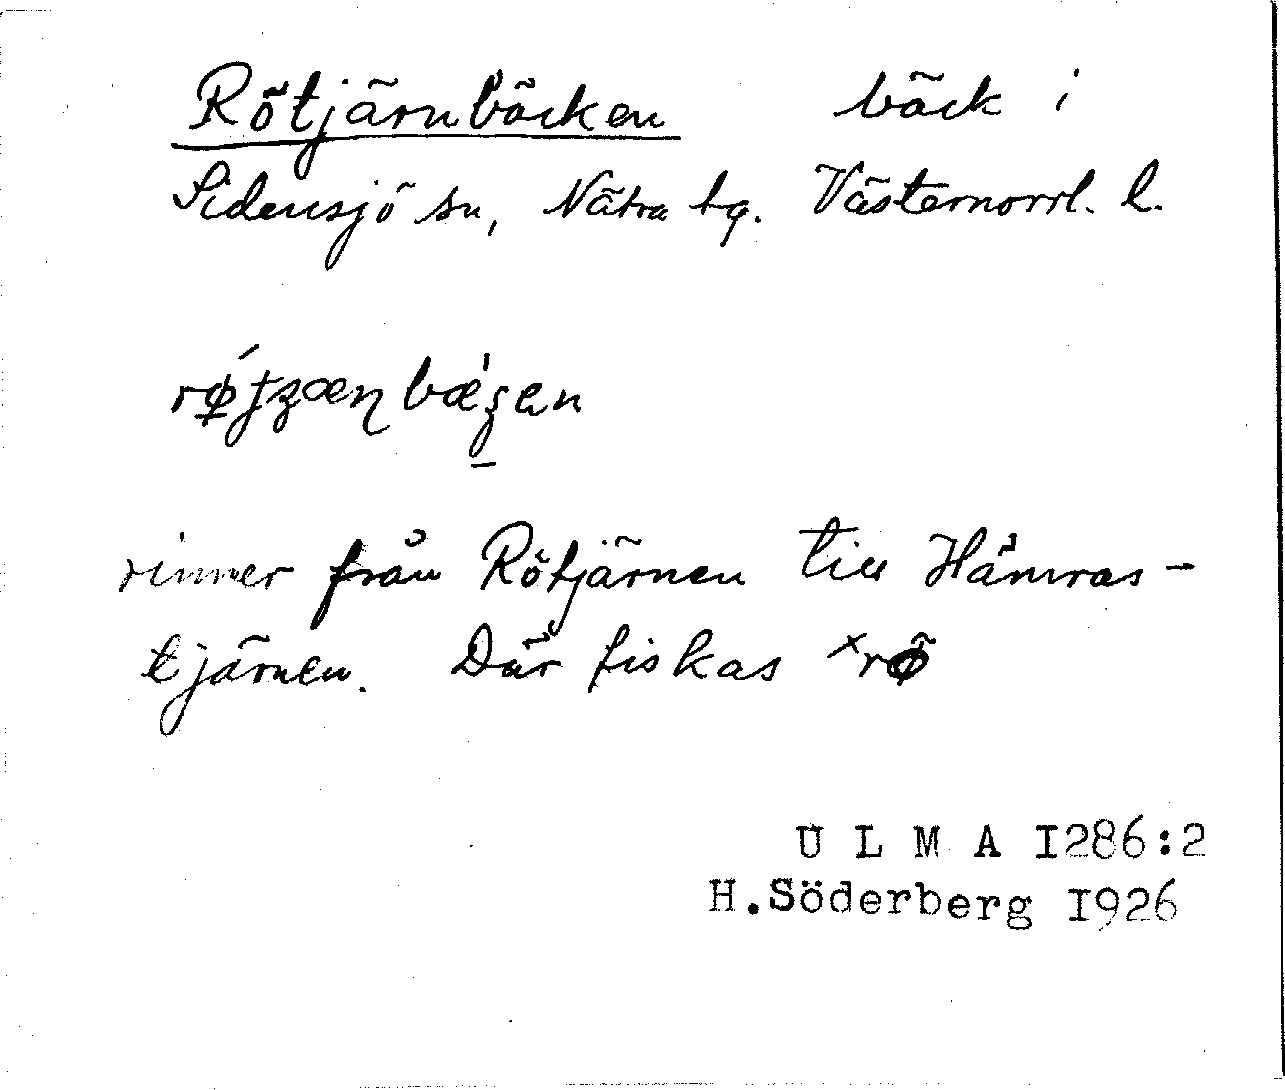 Rötjärnbäcken bäck i
Sidensjö sn, Nätra tg. Västernorrl. l.
rinner från Rötjärnen till Hämras-
tjärnen. Där fiskas ˣrȫ
U L M A I286:2
H.Söderberg I926